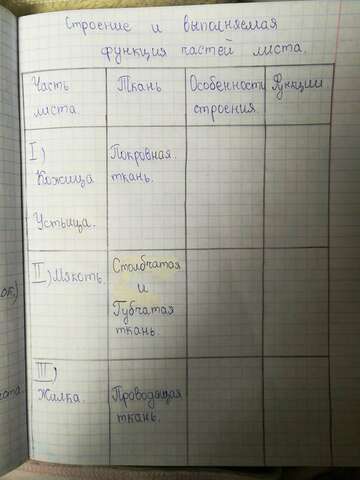 Строение и выполняемая
функция частей листа.
Часть листа.
Ткань
Особенности строения.
Функции.
I)
Кожица
Устьица.
Покровная ткань.
II) Мякоть.
Столбчатая
и
Губчатая
ткань
III)
Жилка.
Проводящая
ткань.